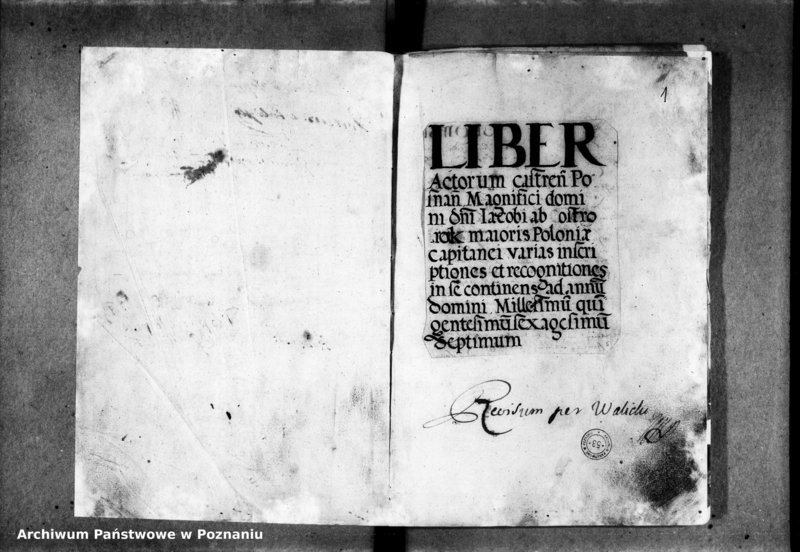 1
LIBER
Actorum castreñ Po
snañ Magnifici domi
ni dñi Iacobi ab ostro
rok maioris Poloniæ
capitanei varias inscri
ptiones et recognitiones
in se continens ad annũ
domini Millesimũ quĩ
gentesimũ sexagesimũ
septimum
Revisum per
53
Archiwum Państwowe w Poznaniu